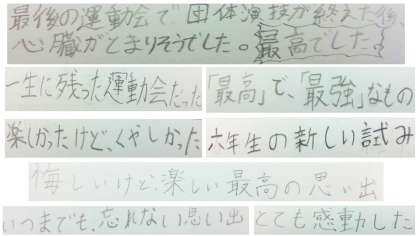 最後の運動会で団体演技が終えた後、
心臓がとまりそうでした。最高でした
一生に残った運動会だった
「最高」で、「最強」なもの
楽しかったけど、くやしかった
六年生の新しい試み
悔しいけど楽しい最高の思い出
いつまでも、忘れない思い出
とても感動した